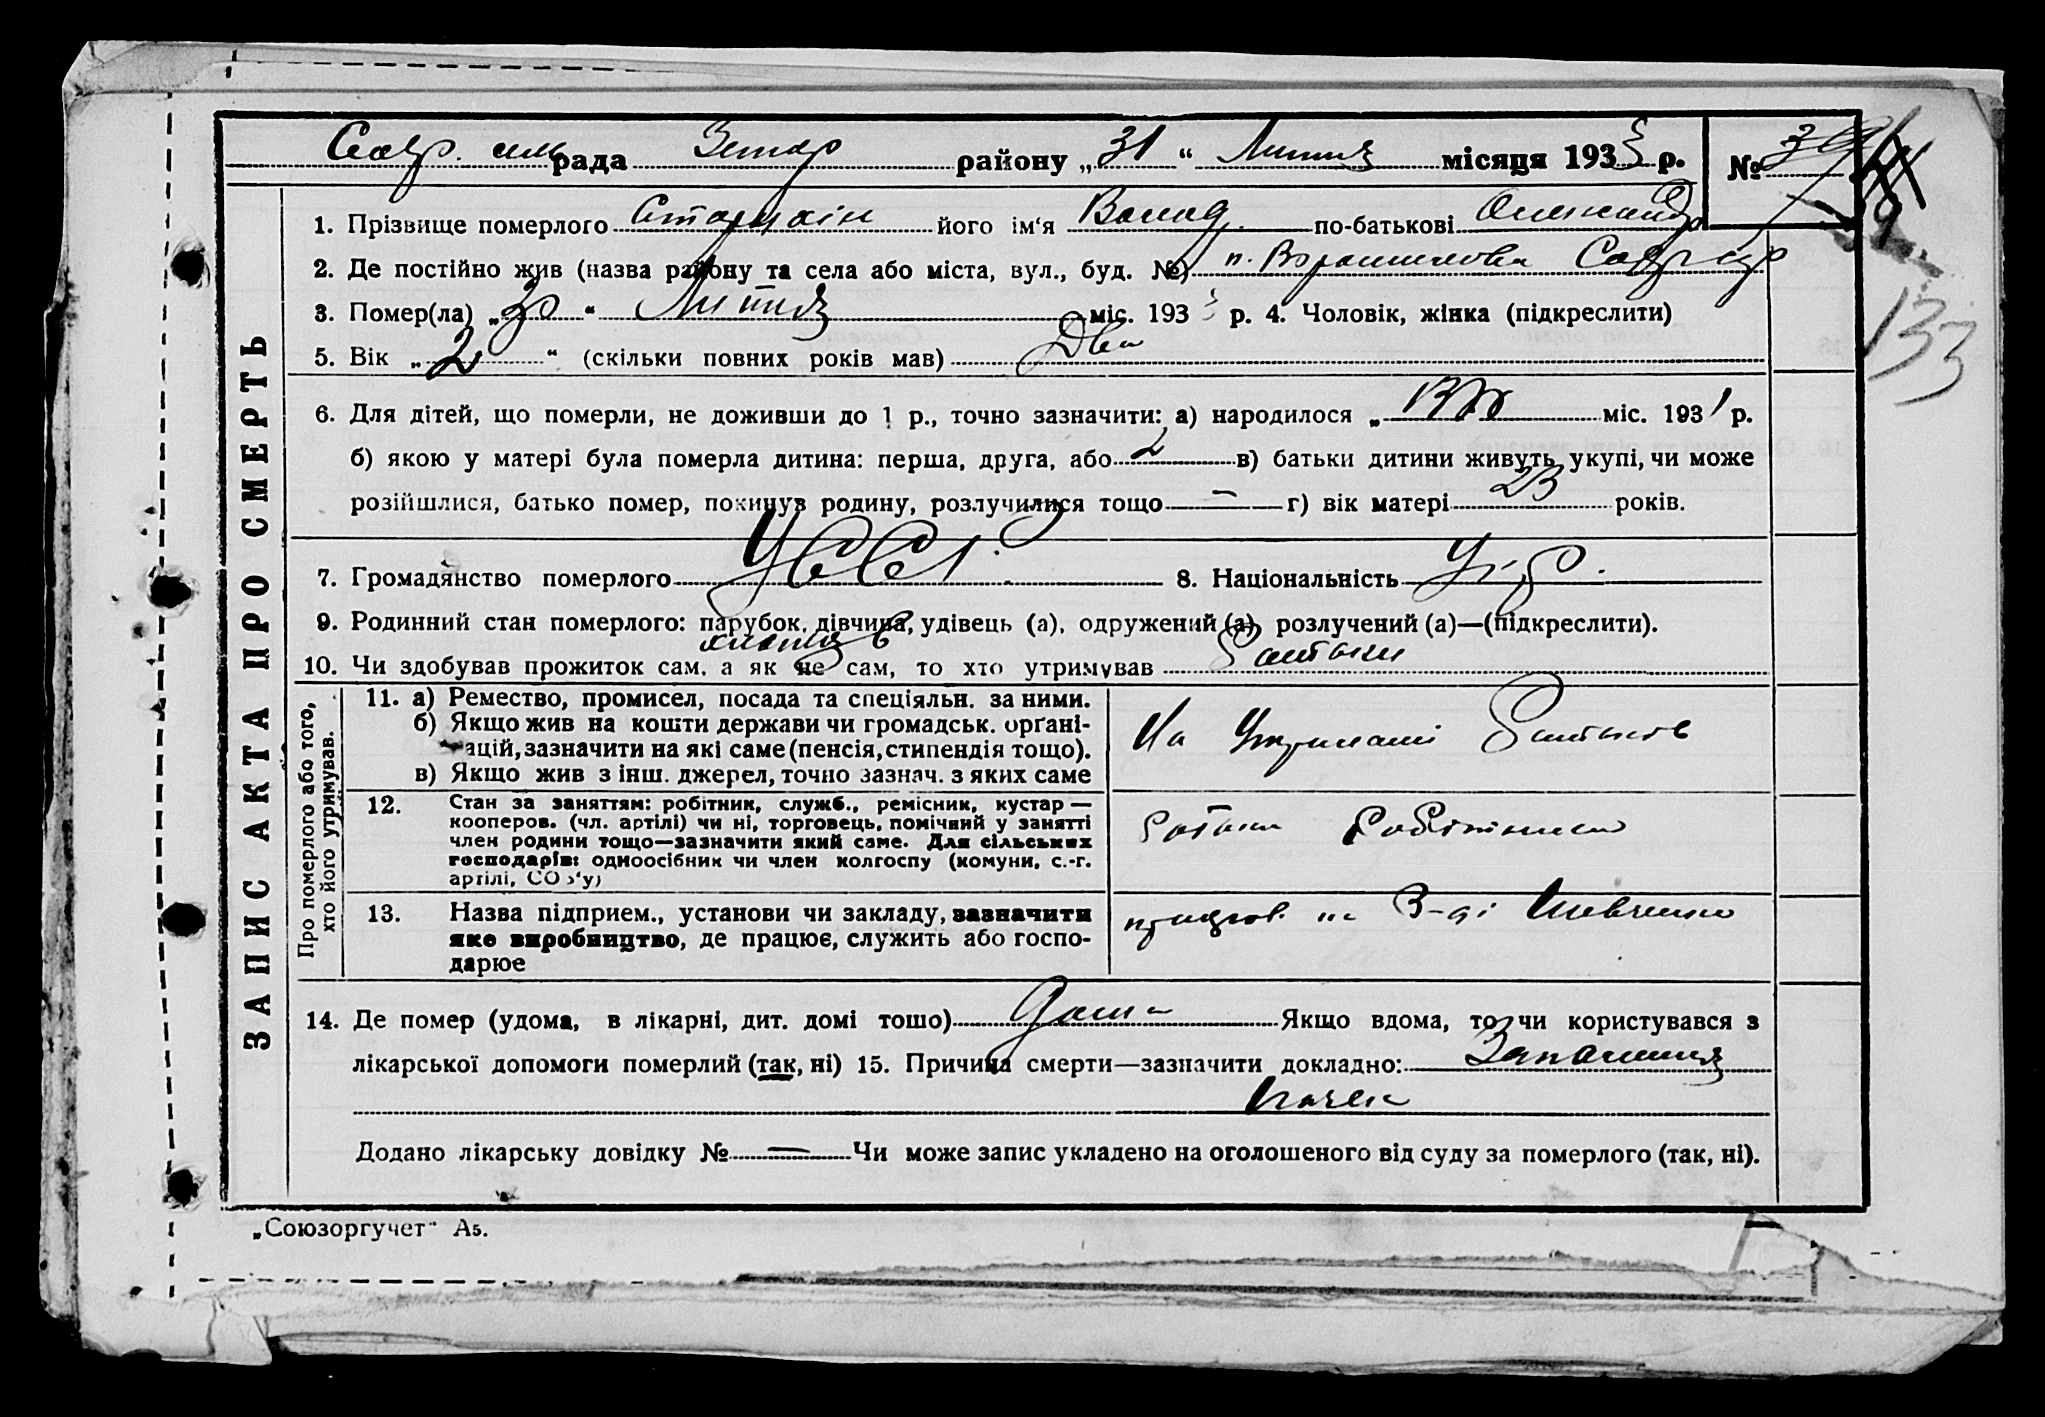 рада Зинов району „31“ Липня місяця 1933 р. № 39
1. Прізвище померлого його ім‘я по-батькові Олександр
2. Де постійно жив (назва району та села або міста, вул., буд. №)
3. Помер(ла) „30“ Липня міс. 1933 р. 4. Чоловік, жінка (підкреслити)
133
5. Вік „2“ (скільки повних років мав) Два
6. Для дітей, що померли, не доживши до 1 р., точно зазначити: а) народилося „ міс. 1931 р.
б) якою у матері була померла дитина: перша, друга, або 2 в) батьки дитини живуть укупі, чи може
розійшлися, батько помер, покинув родину, розлучилися тощо — г) вік матері 23 років.
7. Громадянство померлого УССР 8. Національність Укр.
9. Родинний стан померлого: парубок, дівчина, удівець (а), одружений (а), розлучений (а)—(підкреслити).
хлопець
10. Чи здобував прожиток сам, а як не сам, то хто утримував Батьки
ЗАПИС АКТА ПРО СМЕРТЬ
Про померлого або того, хто його утримував.
11. а) Ремество, промисел, посада та спеціяльн. за ними.
б) Якщо жив на кошти держави чи громадськ. орґані-
зацій, зазначити на які саме (пенсія, стипендія тощо).
в) Якщо жив з інш. джерел, точно зазнач. з яких саме
На утриманні Батьков
12. Стан за заняттям: робітник, служб., ремісник, кустар —
кооперов. (чл. артілі) чи ні, торговець, помічний у занятті
член родини тощо—зазначити який саме. Для сільських
господарів: одноосібник чи член колгоспу (комуни, с.-г.
артілі, СОЗ‘у)
Батьки
13. Назва підприєм., установи чи закладу, зазначити
яке виробництво, де працює, служить або госпо-
дарює
на З-ді
14. Де помер (удома, в лікарні, дит. домі тощо) Дома Якщо вдома, то чи користувався з
лікарської допомоги померлий (так, ні) 15. Причина смерти—зазначити докладно: Запалення
Почек
Додано лікарську довідку № — Чи може запис укладено на оголошеного від суду за померлого (так, ні).
„Союзоргучет“ А5.